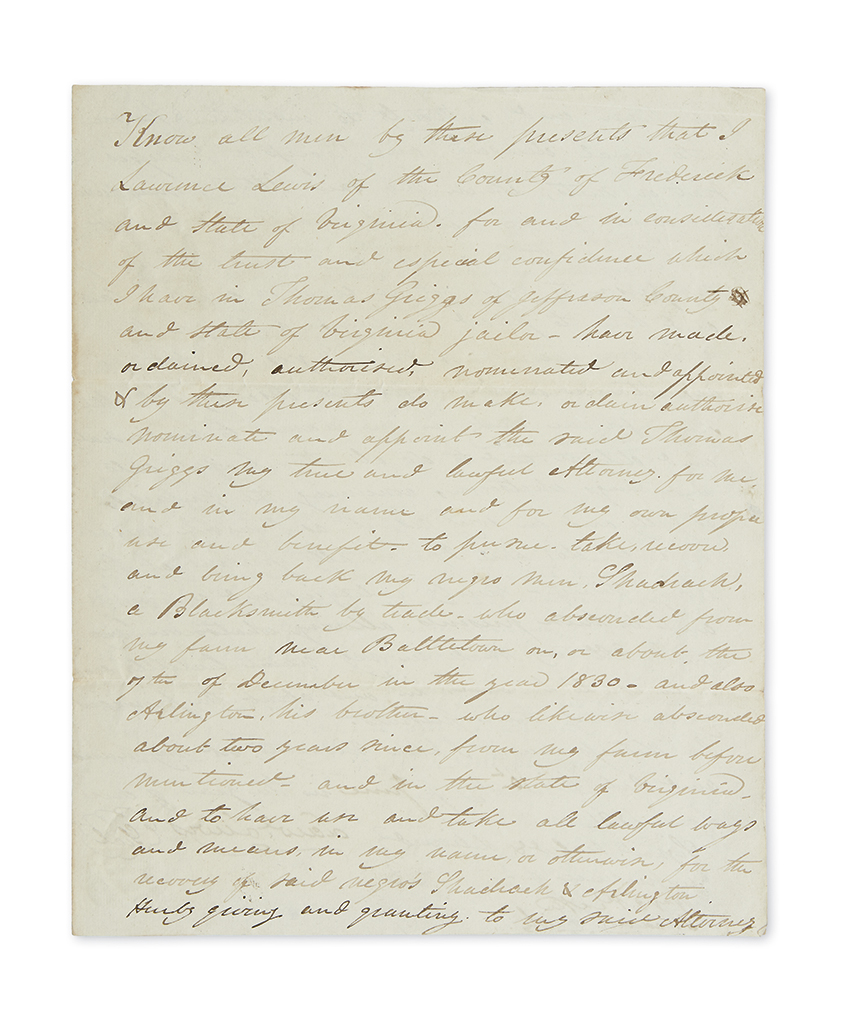 Know all men by these presents that I
Lawrence Lewis of the County of Frederick
and state of Virginia. for and in consideration
of the trust and especial confidence which
I have in Thomas Griggs of Jefferson County
and state of Virginia jailor - have made,
ordained, authorised, nominated and appointed
& by these presents do make, ordain authorise
nominate and appoint the said Thomas
Griggs my true and lawful Attorney. for me
and in my name and for my own proper
use and benefit - to pursue - take, recover
and bring back my negro men, Shadrack,
a Blacksmith by trade - who absconded from
my farm near Battletown on, or about the
7th of December in the year 1830 - and also
Arlington, his brother - who likewise absconded
about two years since, from my farm before
mentioned - and in the state of Virginia -
and to have use and take all lawful ways
and means, in my name, or otherwise, for the
recovery of said negro's Shadrack & Arlington
Hereby giving and granting to my said Attorney